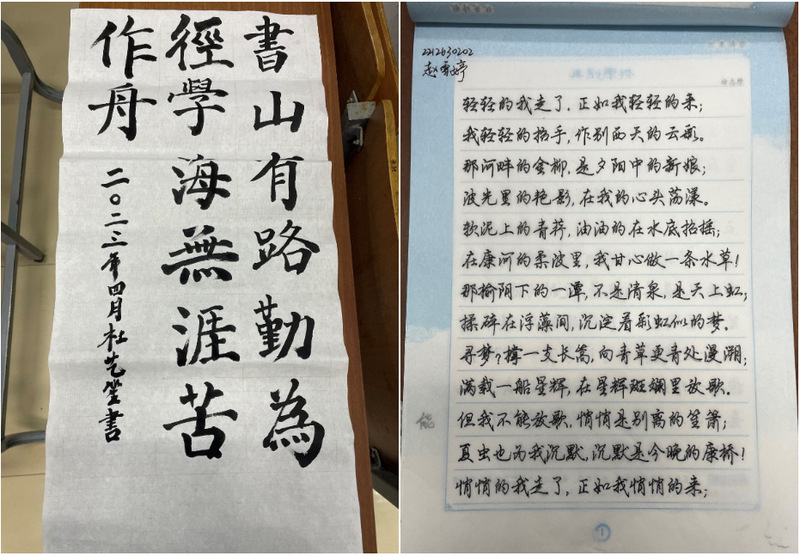 書山有路勤為
徑學海無涯苦
作舟
二〇二三年四月杜先莹書
2212630202
赵雪婷
再别康桥
徐志摩
轻轻的我走了，正如我轻轻的来；
我轻轻的招手，作别西天的云彩。
那河畔的金柳，是夕阳中的新娘；
波光里的艳影，在我的心头荡漾。
软泥上的青荇，油油的在水底招摇；
在康河的柔波里，我甘心做一条水草！
那榆阴下的一潭，不是清泉，是天上虹；
揉碎在浮藻间，沉淀着彩虹似的梦。
寻梦？撑一支长篙，向青草更青处漫溯；
满载一船星辉，在星辉斑斓里放歌。
但我不能放歌，悄悄是别离的笙箫；
夏虫也为我沉默，沉默是今晚的康桥！
悄悄的我走了，正如我悄悄的来；
能
1